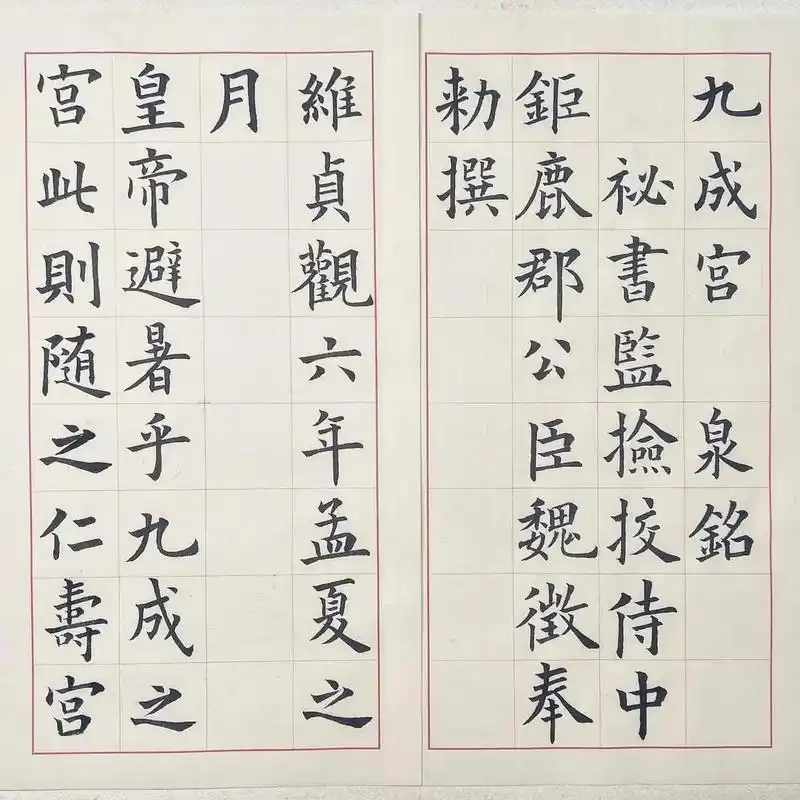 九成宫 泉銘
祕書監撿挍侍中
鉅鹿郡公臣魏徵奉
勑撰
維貞觀六年孟夏之
月
皇帝避暑乎九成之
宫此則随之仁壽宫